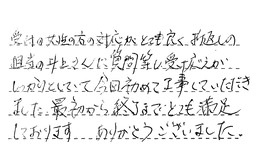 受付の女性の方の対応がとても良く、折返しの
担当の井上さんに質問等し受け応えが
しっかりとしていて今回初めて工事していただき
ました。最初から終りまでとても満足
しております。 ありがとうございました。